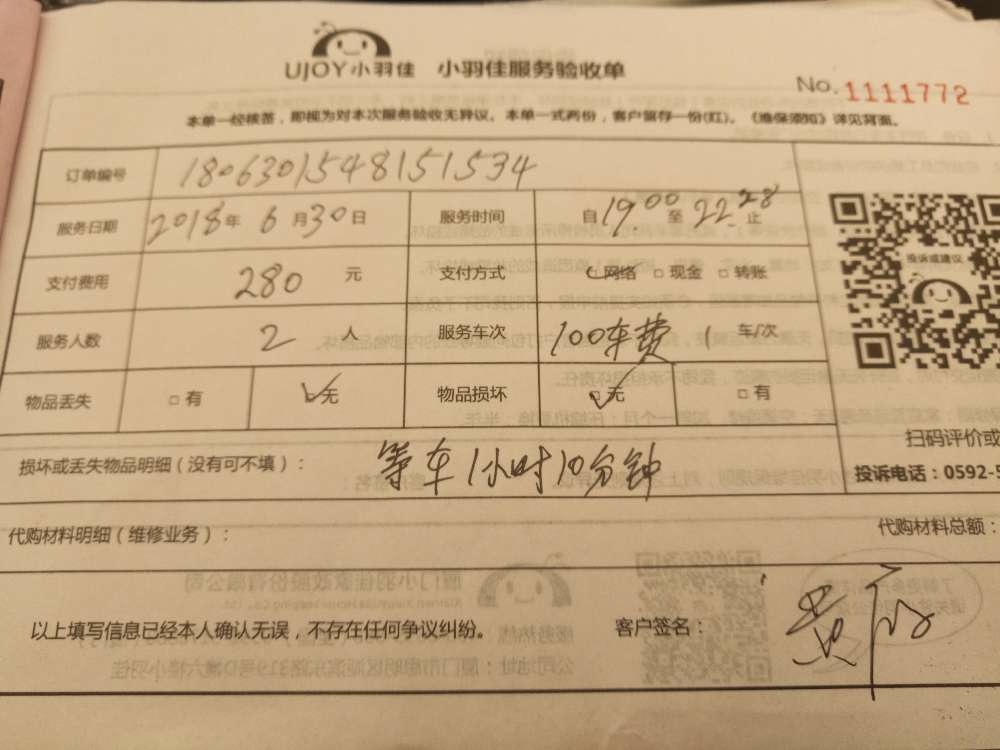 UJOY小羽佳 小羽佳服务验收单
No. 1111772
本单一经核签，即视为对本次服务验收无异议。本单一式两份，客户留存一份(红)。《维保须知》详见背面。
订单编号 1806301548151534
服务日期 2018年 6月30日 服务时间 自19 00 至 22 28 止
支付费用 280 元 支付方式 网络 □ 现金 □ 转账
投诉或建议
服务人数 2 人 服务车次 100车费 1 车/次
物品丢失 □ 有 ✓无 物品损坏 □ 无 □ 有
扫码评价或
损坏或丢失物品明细（没有可不填）： 等车1小时10分钟
投诉电话：0592-5
代购材料明细（维修业务）： 代购材料总额：
以上填写信息已经本人确认无误，不存在任何争议纠纷。 客户签名：